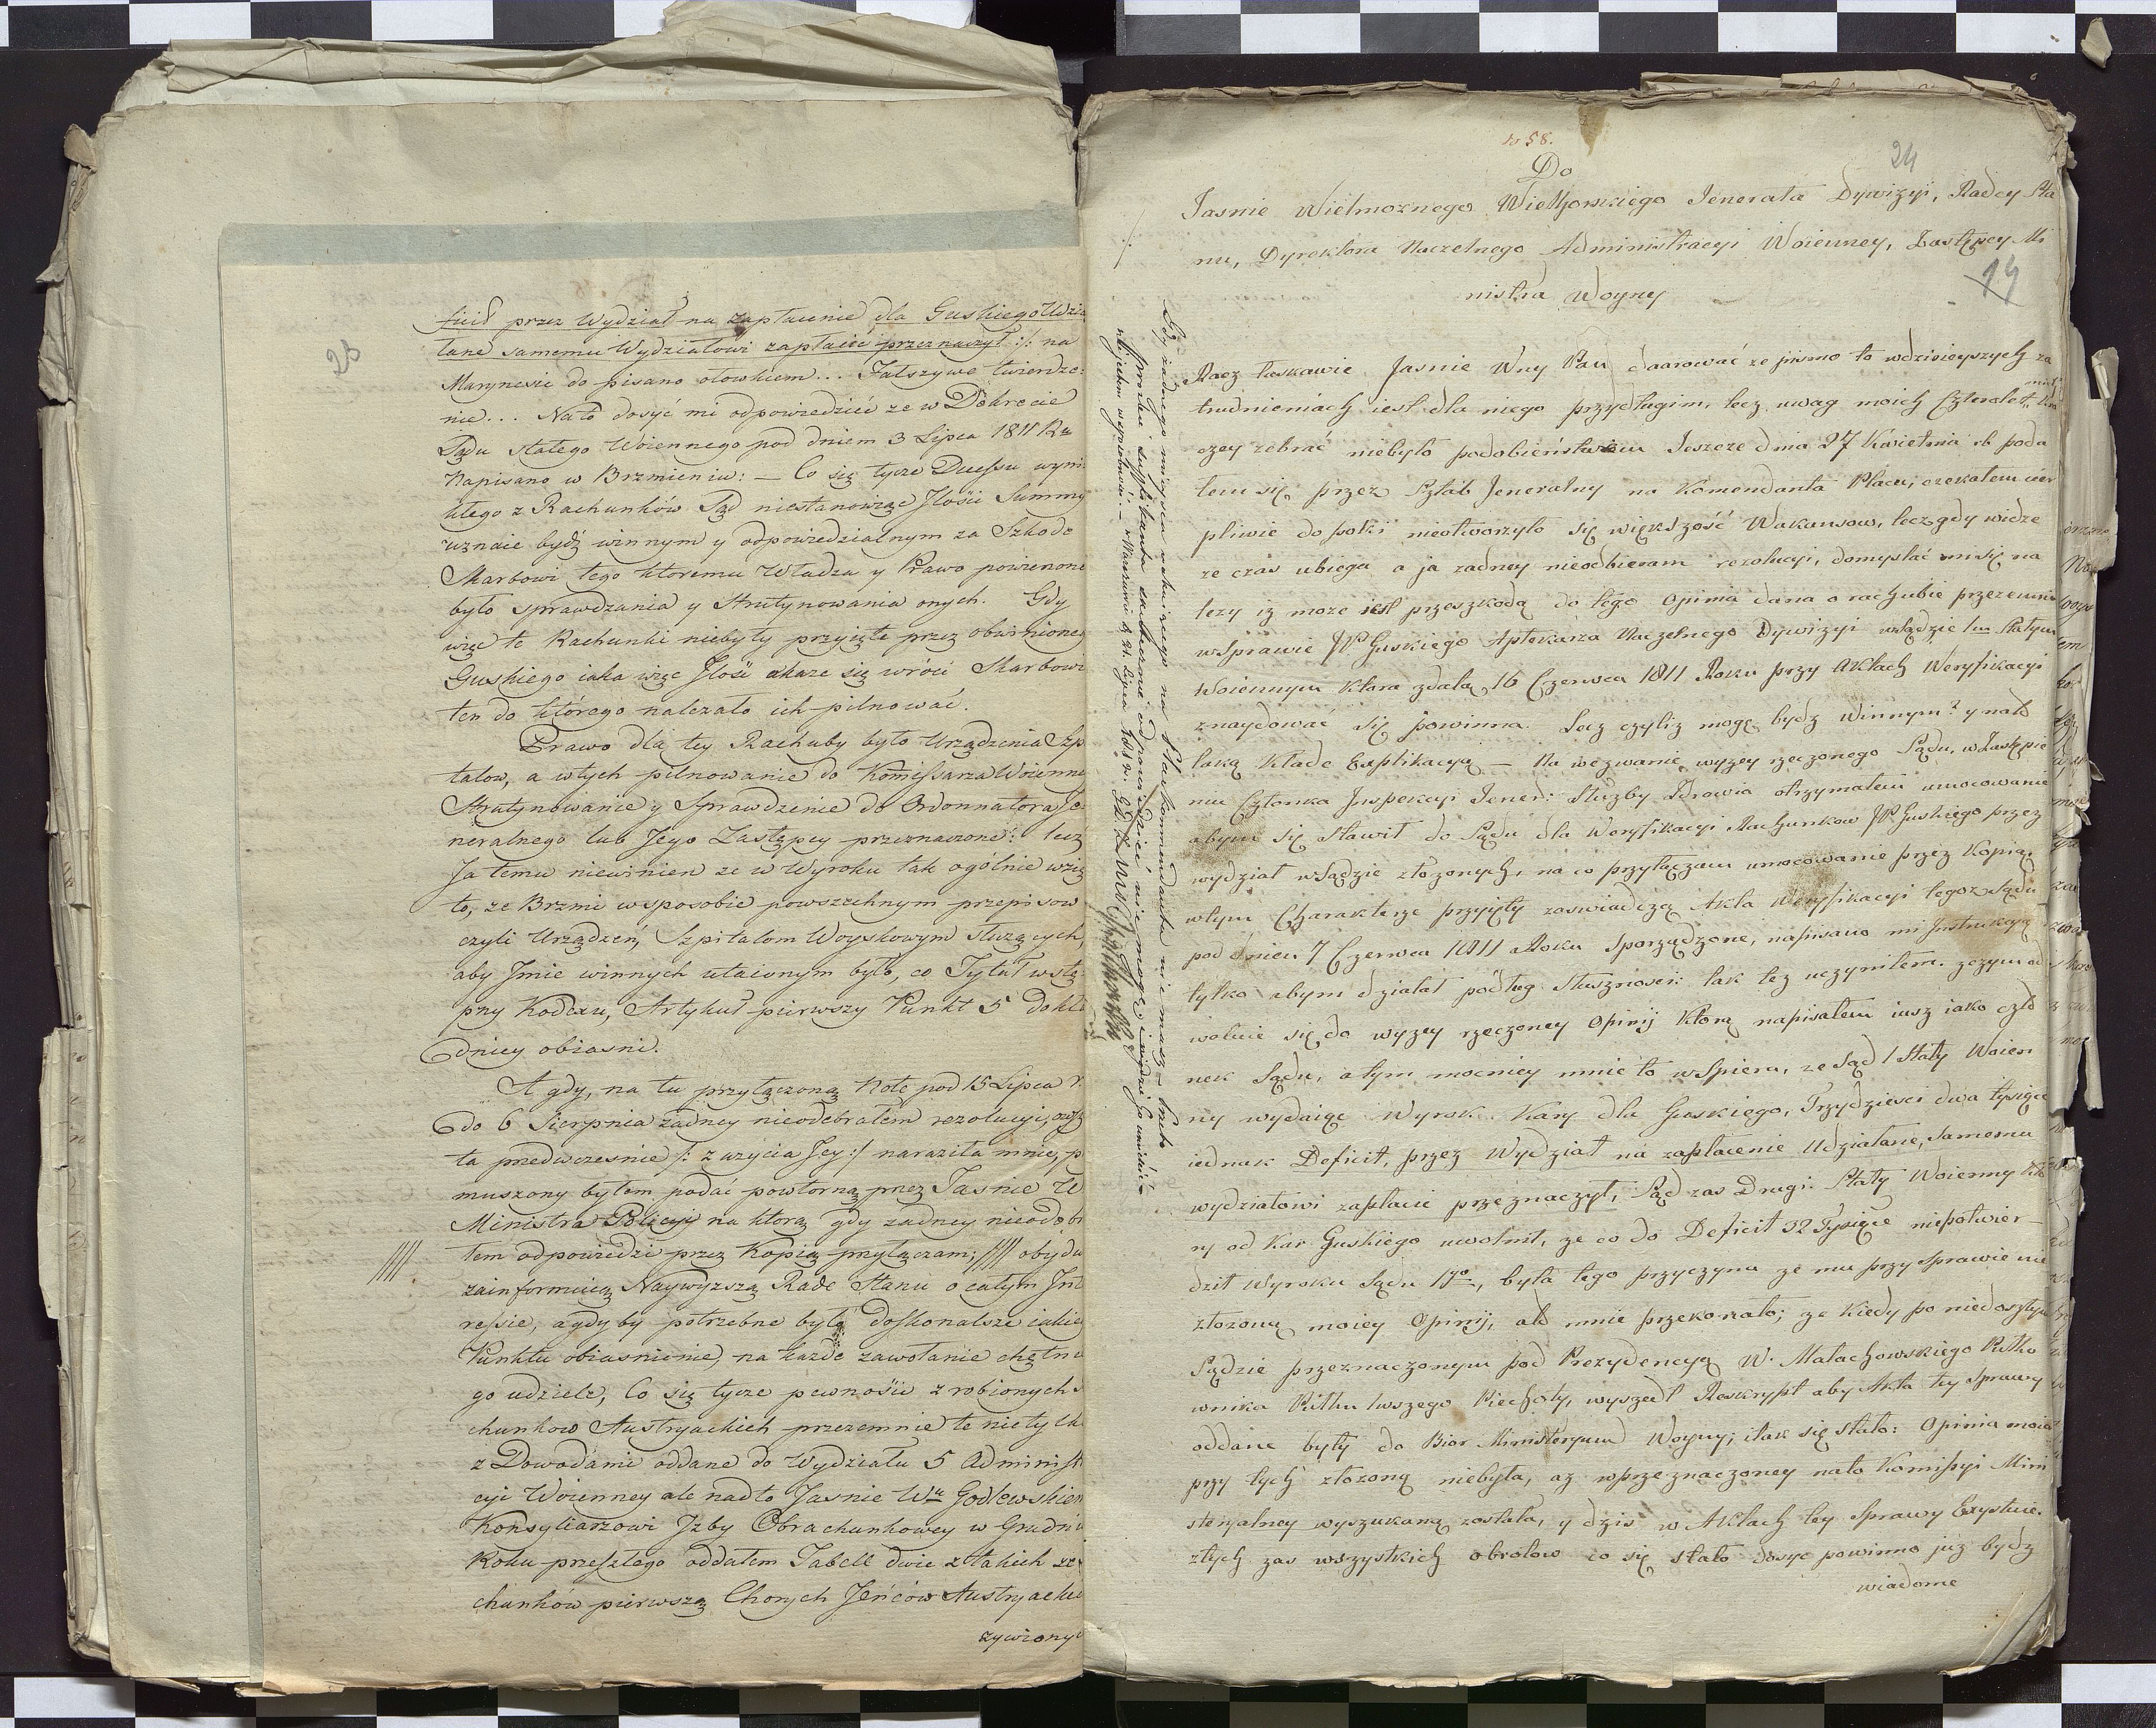 23
ficit przez Wydział na zapłacenie dla Guskiego Udzia
łane samemu Wydziałowi zapłacić przeznaczył :/: na
Marynesie do pisano ołowkiem... Fałszywe twierdze:
nie... Nato dosyć mi odpowiedzieć ze w Dekrecie
Sądu stałego Woiennego pod dniem 3 Lipca 1811 Ru
Napisano w Brzmieniu: — Co się tycze Duessu wyni
kłego z Rachunków Sąd niestanowiąc Jlości Summy
uznaie bydź winnym y odpowiedzialnym za Szkode
Skarbowi tego ktoremu Władza y Prawo powierzone
było sprawdzania y Skrutynowania onych. Gdy
więc te Rachunki niebyły przyięte przez obwinioneg
Guskiego iaka więc Jlość okaze się wróci Skarbowi
ten do którego nalezało ich pilnować.
Prawo dla tey Rachuby było Urządzenia Szp
talow, a w tych pilnowanie do Komissarza Woienne
Skrutynowanie y Sprawdzenie do Ordonnatora Je
neralnego lub Jego Zastępcy przeznaczone: lecz
Ja temu niewinien ze w Wyroku tak ogólnie wzię
to, ze Brzmi w sposobie powszechnym przepisow
czyli Urządzeń Szpitalom Woyskowym słuzących,
aby Jmie winnych utaionym było, co Tytuł wstę:
pny Kodexu, Artykuł pierwszy Punkt 5 dokła
dniey obiasni.
A gdy, na tu przyłączoną Notę pod 15 Lipca r.
do 6 Sierpnia żadney nieodebrałem rezolucyi,
ta przedwczesnie /: z uzycia Jey :/ naraziła mnie, p
muszony byłem podać powtorną przez Jasnie W
Ministra Policyi na ktorą gdy zadney nieodebr
//// tem odpowiedzi przez Kopią przyłączam; //// obydw
zainformuią Naywyzszą Rade Stanu o całym Jnt
ressie, a gdyby potrzebne było doskonalsze iakie
Punktu obiasnienie, na kazde zawołanie chętni
go udziele, Co się tycze pewności zrobionych
chunkow Austryackich przezemnie te nietylk
z Dowodami oddane do Wydziału 5 Administ
cyi Woienney ale nadto Jasnie Wu Godlewskiem
Konsyliarzowi Jzby Obrachunkowey w Grudni
Roku przeszłego oddałem Tabell dwie z takich
chunków pierwszą Chorych Jeńców Austryackic
zywiony
no 58.
24
Do
Jasnie Wielmoznego Wielhorskiego Jenerała Dywizyi, Radcy Sta
nu, Dyrektora Naczelnego Administracyi Woienney, Zastępcy Mi
nistra Woyny
14
Racz łaskawie Jasnie Wny Pan daarować ze pismo to w dzisieyszych za
trudnieniach iest dla niego przydługim, lecz uwag moich
czey zebrać niebyło podobieństwem Jeszcze dnia 27 Kwietnia rb poda
łem się przez Sztab Jeneralny na Komendanta Placu; czekałem cier
pliwie do poki nieotworzyło się większość Wakansow, lecz gdy widze
ze czas ubiega a ja zadney nieodbieram rezolucyi, domyslać mi się na
lezy iz moze iest przeszkodą do tego Opinia dana o rachubie przezemnie
w Sprawie JP Guskiego Aptekarza Naczelnego Dywizyi w Sądzie 1m Stałym
Woiennym Ktora zdała 16 Czerwca 1811 Roku przy Aktach Weryfikacyi
znaydować się powinna. Lecz czyliz mogę bydz winnym? y nato
taką kłade Explikacyą — Na wezwanie wyzey rzeczonego Sądu, w Zastępie
mu Członka Jnspekcyi Jener: Słuzby Zdrowia otrzymałem umocowanie
abym się stawił do Sądu dla Weryfikacyi Rachunkow JP Guskiego przez
wydział w Sądzie złozonych, na co przyłączam umocowanie przez Kopią,
w tym Charakterze przyięty zaswiadczą Akta Weryfikacyi tegoz Sądu
pod dniem 7 Czerwca 1811 Roku Sporządzone, napisano mi Jnstrukcyą
tylko abym działał podług Słusznosci: tak tez uczyniłem. zczym od
wołuie się do wyzey rzeczoney Opinij Ktorą napisałem iusz iako czło
nek Sądu, a tym mocniey mnie to wspiera, ze Sąd 1 Stały Woien
ny wydaiąc Wyrok Kary dla Guskiego, Trzydziesci dwa tysiące
iednak Deficit, przez Wydział na zapłacenie Udziałane, Samemu
wydziałowi zapłacić przeznaczył, Sąd zas Drugi Stały Woienny Kto
ry od Kar Guskiego uwolnił, ze co do Deficit 32 Tysiące niepotwier-
dził Wyroku Sądu 1go, była tego przyczyna ze mu przy Sprawie nie
złozono moiey Opinij, ato mnie przekonało; ze Kiedy po niedoszłym
Sądzie przeznaczonym pod Prezydencyą W. Małachowskiego Pułko
wnika Pułku 1wszego Piechoty, wyszedł Reskrypt aby Akta tey Sprawy
oddane były do Bior Ministeryum Woyny; i tak się stało: Opinia moia
przy tych złozoną niebyła, az w przeznaczoney nato Komissyi Mini
steryalney wyszukaną została, y dzis w Aktach tey Sprawy Exystuie.
z tych zas wszystkich obrotow co się stało dosyc powinno juz bydz
wiadome